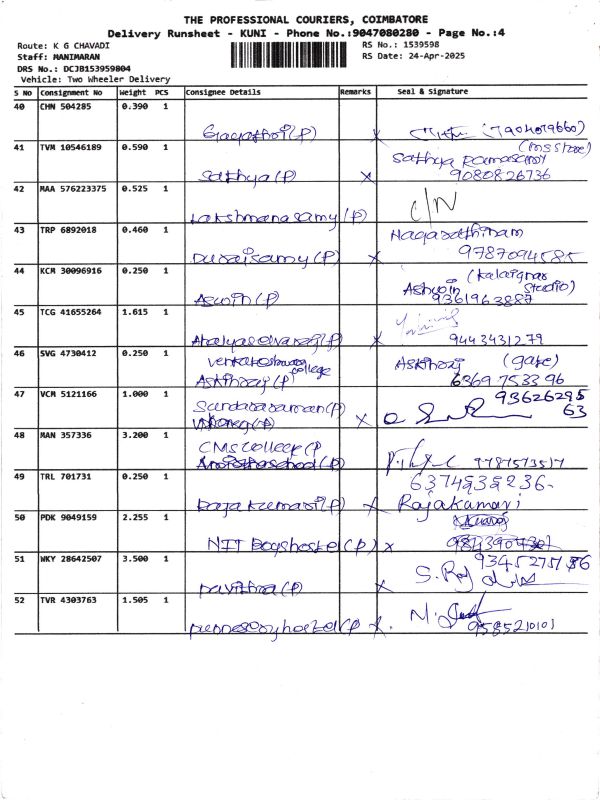 THE PROFESSIONAL COURIERS, COIMBATORE
Delivery Runsheet - KUNI - Phone No.:9047080280 - Page No.:4
Route: K G CHAVADI
RS No.: 1539598
Staff: MANIMARAN
RS Date: 24-Apr-2025
DRS No.: DCJB153959804
Vehicle: Two Wheeler Delivery
S No Consignment No Weight PCS Consignee Details Remarks Seal & Signature
40 CHN 504285 0.390 1
(P) x (7904019660)
41 TVM 10546189 0.590 1
Sathya Ramasamy
Sathya (P) x 9080826736
42 MAA 576223375 0.525 1
C/N
Lakshmanasamy (P)
43 TRP 6892018 0.460 1
Nagarathinam
Duraisamy (P) x 9787094585
44 KCM 30096916 0.250 1
(Kalaignar Studio)
Ashwin
Aswin (P) 9361963887
45 TCG 41655264 1.615 1
(P) x 9443431279
46 SVG 4730412 0.250 1
college
(P) 6369753396
47 VCM 5121166 1.000 1
9362629563
Sundararaman (P) x
48 MAN 357336 3.200 1
CMS College (P)
49 TRL 701731 0.250 1
Rajakumari (P) x Rajakumari
50 PDK 9049159 2.255 1
NIT Boyshostel (P) x
51 WKY 28642507 3.500 1
S. Raj
Pavithra (P) x
52 TVR 4303763 1.505 1
M.
(P) x 9585210101